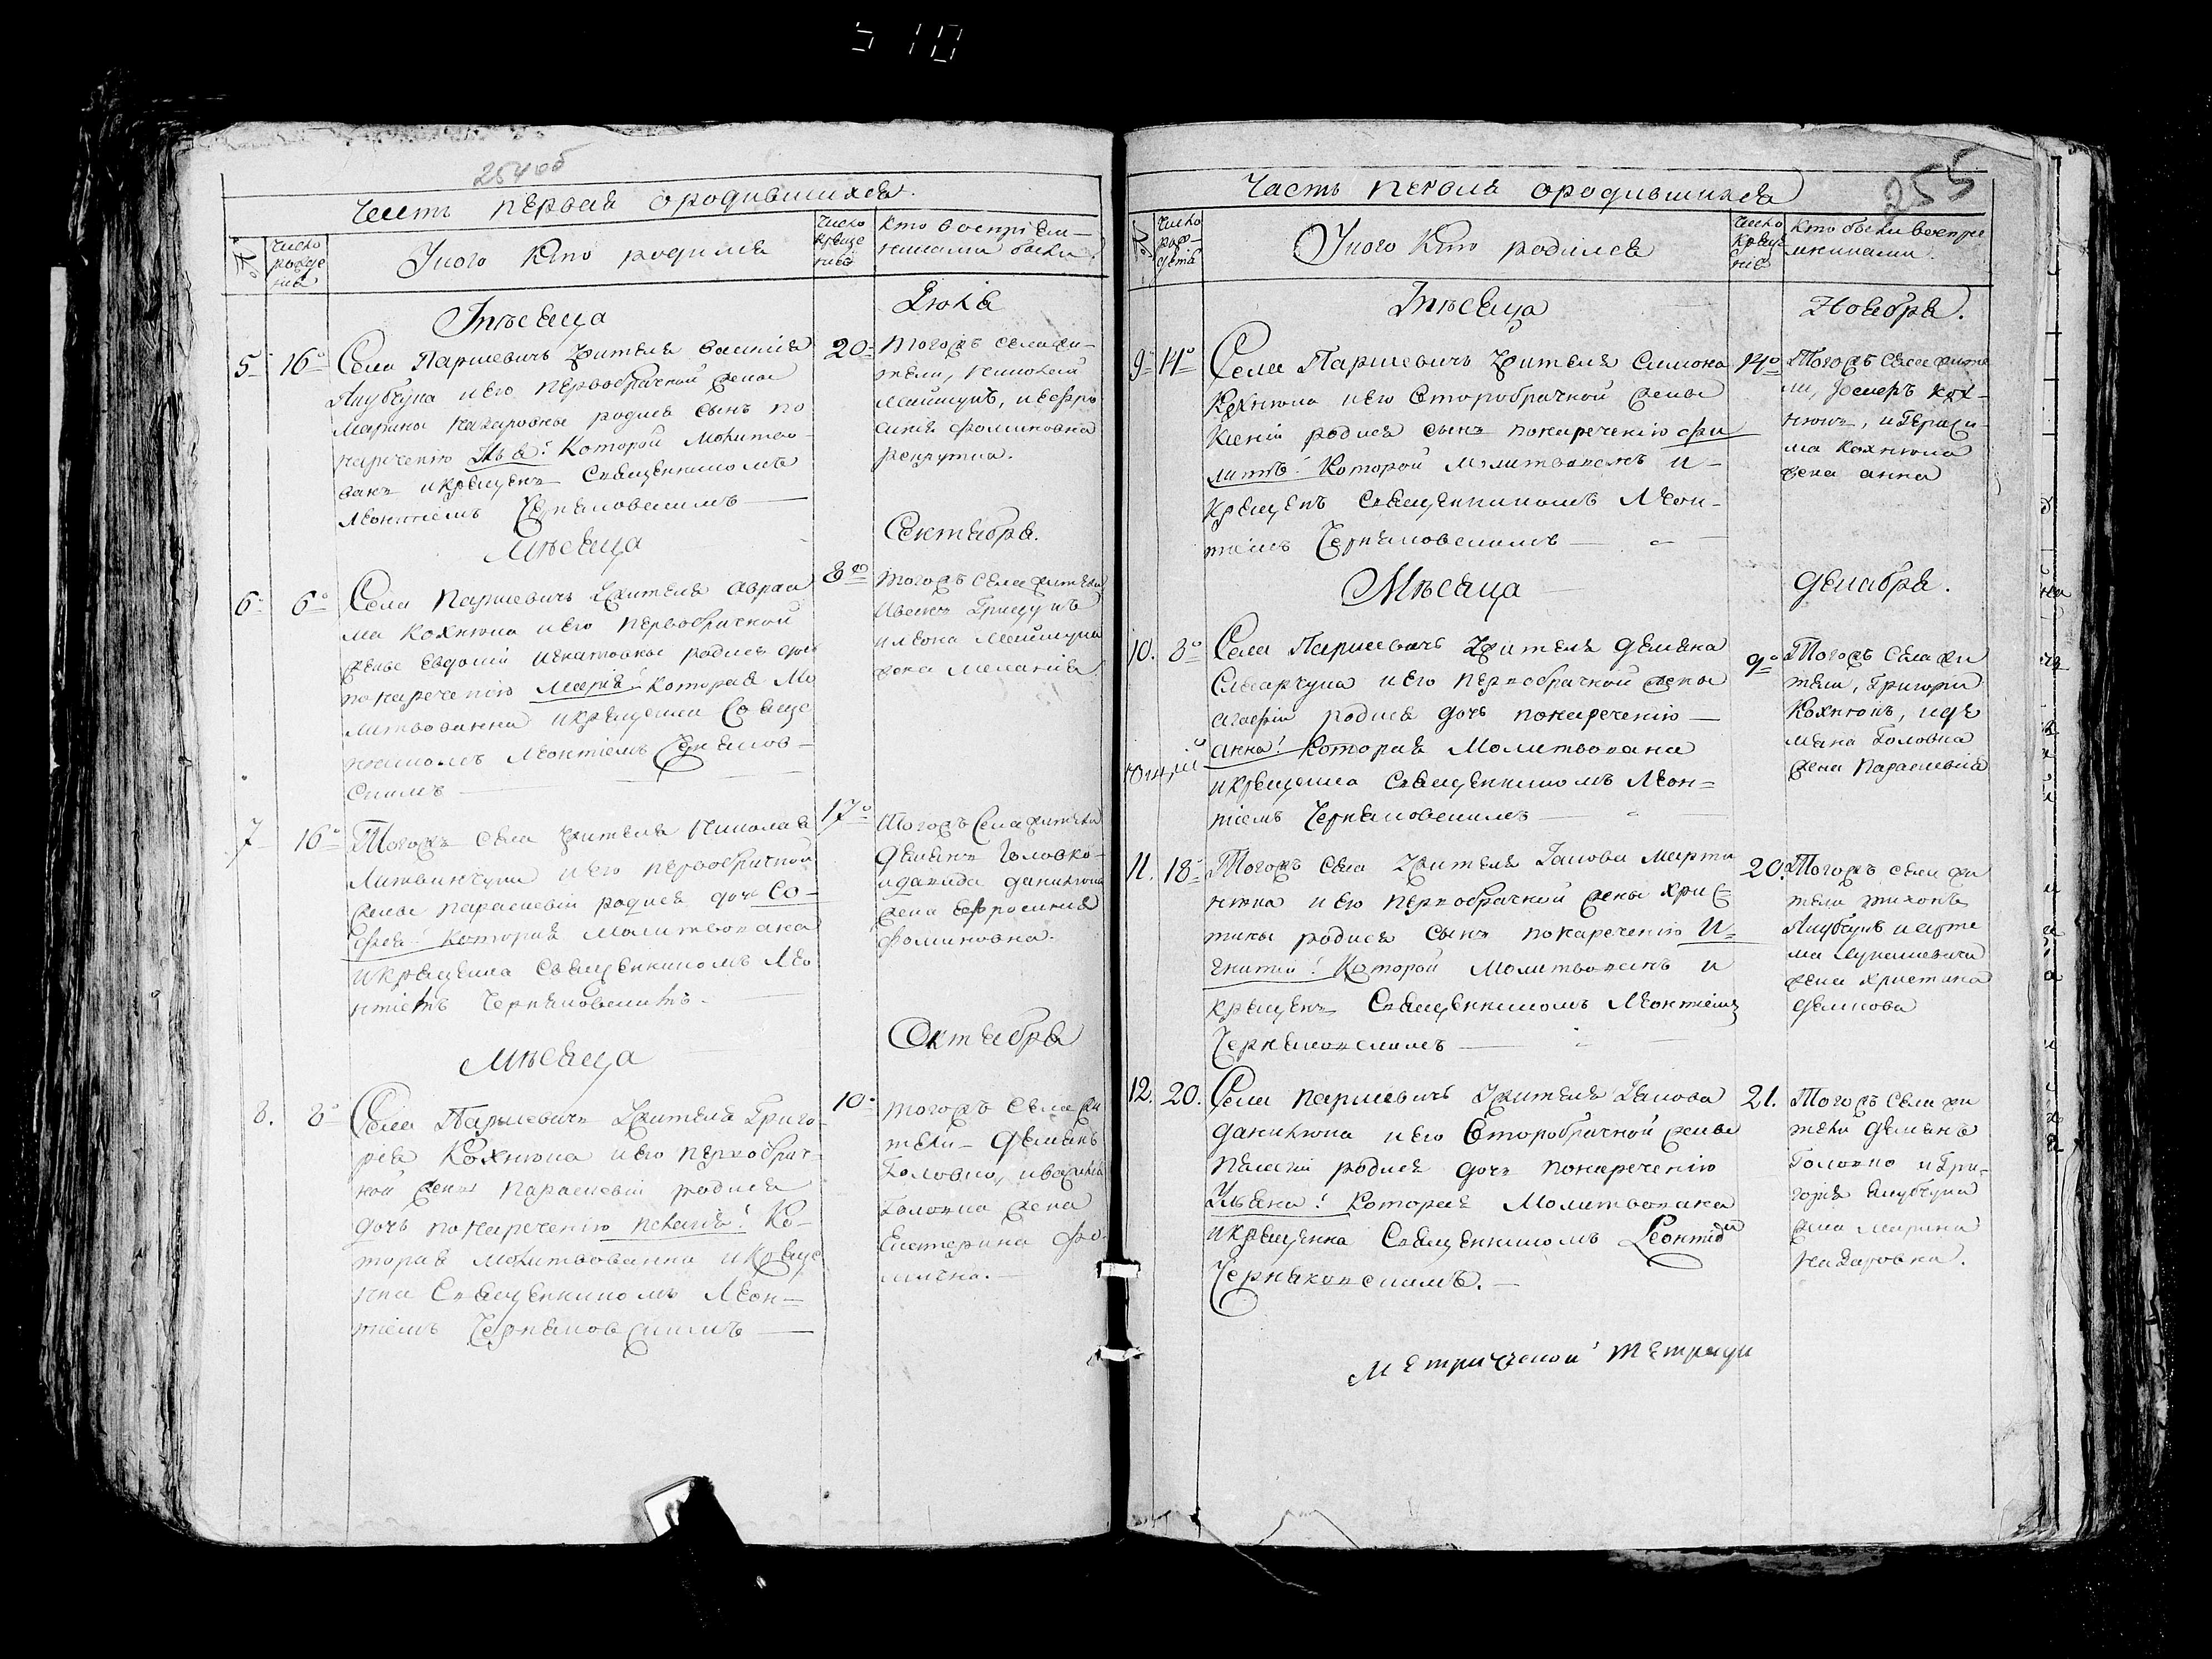 310
254об
Часть перваяородившихся.
№
Число рожде ния
Укого Кто родился
Число креще ния
Кто воспріем-
никами были
Мѣсеца
Іюля
5
16
Села Паришевичь жителя
Якубчука и его первобрачной жены
Марины Назаровны родися сынъ по
наречению Илія: Которой Молитво-
ванъ и крещенъ Священникомъ
Леонтіемъ Черняховскимъ
20
Тогожъ села жи-
тели, Николай
и Ефро
синія Фоминовна
рекрутка.
Мѣсеца
Сентября.
6
6
Села Паришевичь жителя Авраа
ма Кохнюка и его первобрачной
жены Евдокіи Игнатовны родися дочь
понаречению Марія: Которая Мо
литвованна и крещенна Свяще
нникомъ Леонтіемъ Черняхов-
скимъ
8
Тогожъ Села жители
Иванъ Грицукъ
жена Меланія
7
16
Тогожъ Села жителя Николая
Литвинчука и его первобрачной
жены Параскевіи родися дочь Со-
фія: Которая Молитвована
и крещена Священникомъ Лео
нтіемъ Черняховскимъ.
17
Тогожъ Села жители
Демянъ Головко-
и Данила Данилюка
жена Ефросинія
Фоминовна.
Мѣсяца
Октября
8.
8
Села Паришевичь Жителя Григо-
рія Кохнюка и его первобрач-
ной жены Параскевіи родися
дочь понаречению Пелагія: Ко-
торая Молитвованна и креще
нна Священникомъ Леон-
тіемъ Черняховскимъ
10
Тогожъ Села жи
тели Демянъ
Головко, и
Головка жена
Екатерина Фо-
мична.
255
Часть первая ородившихся
№
Число рож- дения
Укого Кто родился
Число креще ния
Кто были воспрі
емниками.
Мѣсеца
Ноября.
9
14
Села Паришевичь Жителя Симона
Кохнюка и его Второбрачной жены
Ксеніи родися сынъ понаречению Фи
липъ: Которой Молитвованъ и
крещенъ Священникомъ Леон-
тіемъ Черняховскимъ
14
Тогожъ Села жите
ли, Іосифъ Кох-
нюкъ, и Гераси-
ма Кохнюка
жена Анна
Мѣсяца
Декабря.
10.
8
Села Паришевичь Жителя Демяна
Слюсарчука и его первобрачной жены
Агафіи родися дочь понаречению
Анна: Которая Молитвована
и крещенна Священникомъ Леон-
тіемъ Черняховскимъ
9
Тогожъ Села жи
тели, Григорій
Кохнюкъ, и Де
мяна Головка
жена Параскевія
11.
18
Тогожъ Села Жителя Іакова Марты
нюка и его первобрачной жены Хрис
тины родися сынъ понаречению И-
гнатій: Которой Молитвованъ и
крещенъ Священникомъ Леонтіемъ
Черняховскимъ
20.
Тогожъ Села жи
тели Тихонъ
Якубчукъ и Арте
ма Лукашевича
жена Христина
12.
20.
Села Паришевичь Жителя Іакова
Данилюка и его Второбрачной жены
Пелагіи родися дочь понаречению
Ульяна: Которая Молитвована
и крещенна Священникомъ Леонтіемъ
Черняховскимъ.
21.
Тогожъ Села жи
тели Демянъ
Головко и Гри-
горія Якубчука
жена Марина
Назаровна.
Метрической тетради